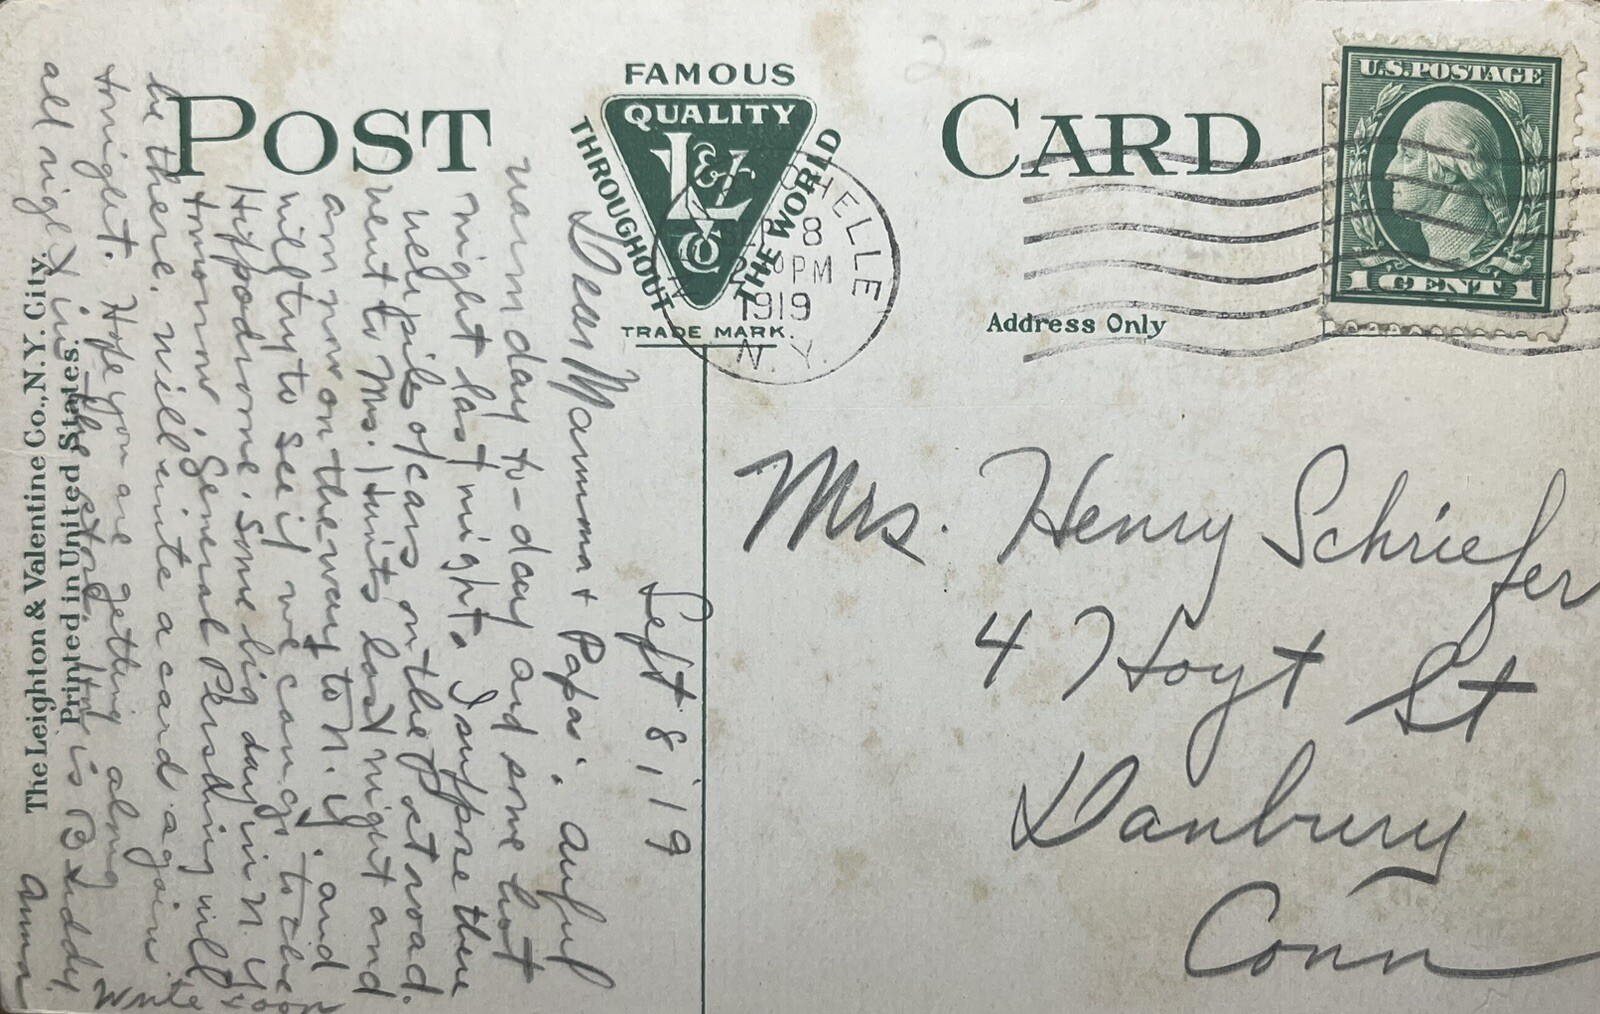 POST CARD
FAMOUS
QUALITY
L&V
CO
THROUGHOUT
THE WORLD
TRADE MARK.
U.S. POSTAGE
1 CENT 1
HELLE
8
PM
1919
N.Y.
Address Only
Mrs. Henry Schriefer
4 Hoyt St
Danbury
Conn
Sept 8, 19
Dear Mamma + Papa: Awful
warm day to-day and some hot
night last night. I suppose there
were piles of cars on the post road.
went to Mrs. Hunts last night and
am now on the way to N.Y. and
will try to see if we can go to the
Hippodrome. Some big day in N.Y.
tomorrow. General Pershing will
be there. Will write a card again
tonight. Hope you are getting along
all right in the store. How is Buddy.
Anna
Write soon
The Leighton & Valentine Co., N.Y. City.
Printed in United States.